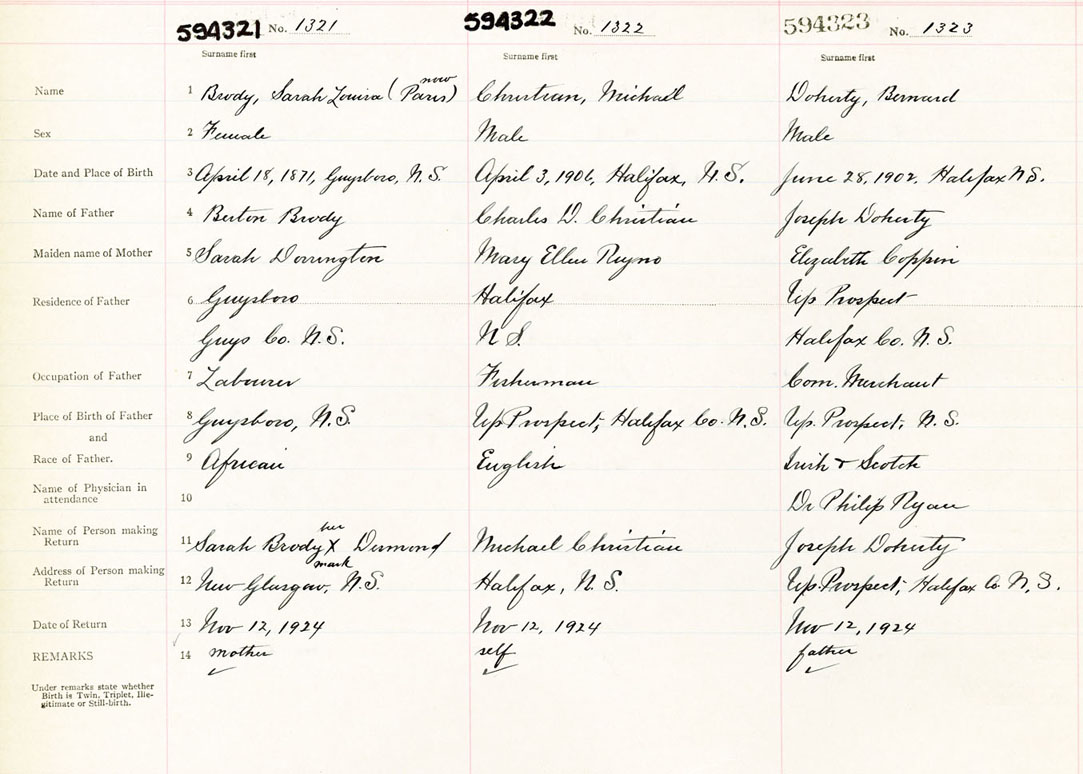 594321 No. 1321 594322 No. 1322 594323 No. 1323
Surname first Surname first Surname first
now
Name 1 Brody, Sarah Louisa (Paris) Christian, Michael Doherty, Bernard
Sex 2 Female Male Male
Date and Place of Birth 3 April 18, 1871, Guysboro, N.S. April 3, 1906, Halifax, N.S. June 28, 1902, Halifax N.S.
Name of Father 4 Berton Brody Charles D. Christian Joseph Doherty
Maiden name of Mother 5 Sarah Dorrington Mary Ellen Reyno Elizabeth Coppin
Residence of Father 6 Guysboro Halifax Up Prospect
Guys Co. N.S. N S. Halifax Co. N.S.
Occupation of Father 7 Labourer Fisherman Com. Merchant
Place of Birth of Father 8 Guysboro, N.S. Up Prospect, Halifax Co. N.S. Up. Prospect, N.S.
and
Race of Father. 9 African English Irish & Scotch
Name of Physician in
attendance 10 Dr Philip Ryan
her
Name of Person making
Return 11 Sarah Brody X Desmond Michael Christian Joseph Doherty
mark
Address of Person making
Return 12 New Glasgow, N.S. Halifax, N.S. Up. Prospect, Halifax Co. N.S.
Date of Return 13 Nov 12, 1924 Nov 12, 1924 Nov 12, 1924
REMARKS 14 mother self father
Under remarks state whether
Birth is Twin, Triplet, Ille-
gitimate or Still-birth.